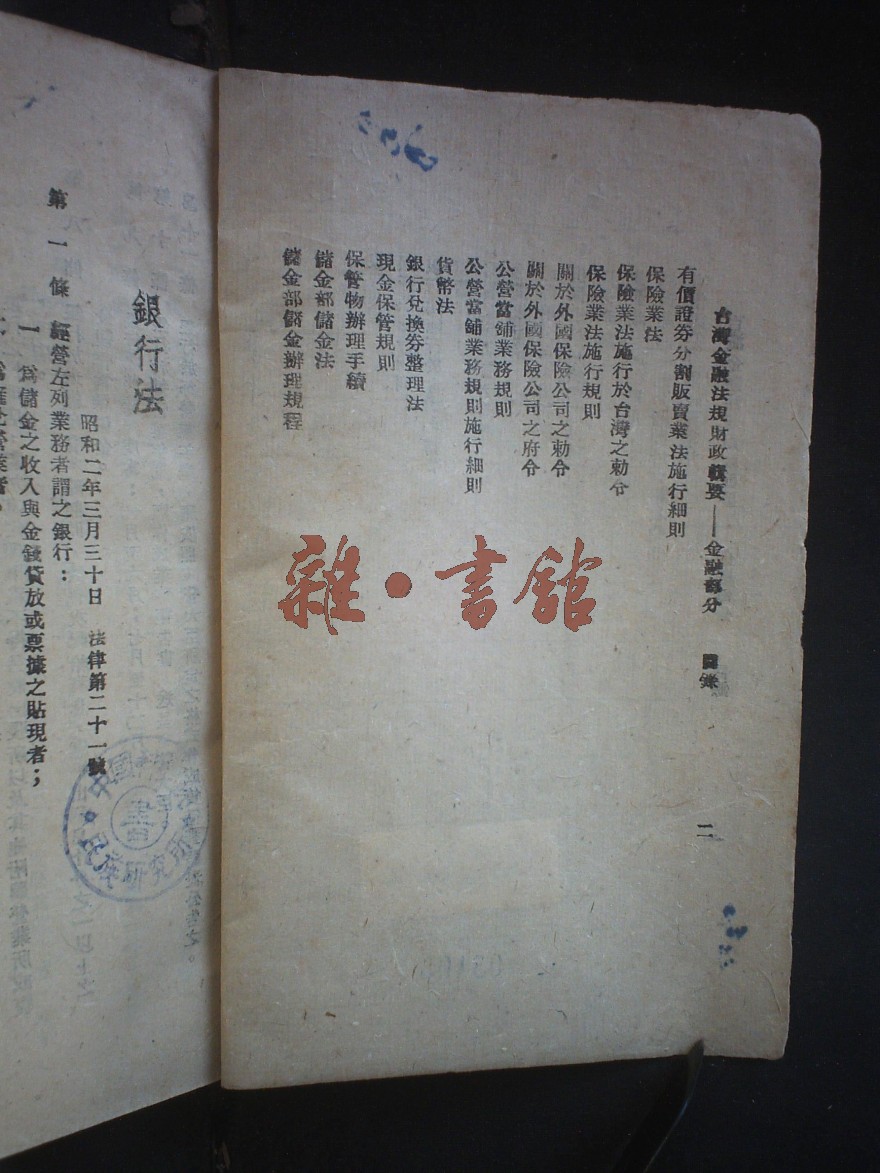 台灣金融法規財政輯要——金融部分 目錄 二
有價證券分割販賣業法施行細則
保險業法
保險業法施行於台灣之勅令
保險業法施行規則
關於外國保險公司之勅令
關於外國保險公司之府令
公營當舖業務規則
公營當舖業務規則施行細則
貨幣法
銀行兌換券整理法
現金保管規則
保管物辦理手續
儲金部儲金法
儲金部儲金辦理規程
雜·書館
銀行法
昭和二年三月三十日 法律第二十一號
第一條 經營左列業務者謂之銀行：
一、爲儲金之收入與金錢貸放或票據之貼現者；